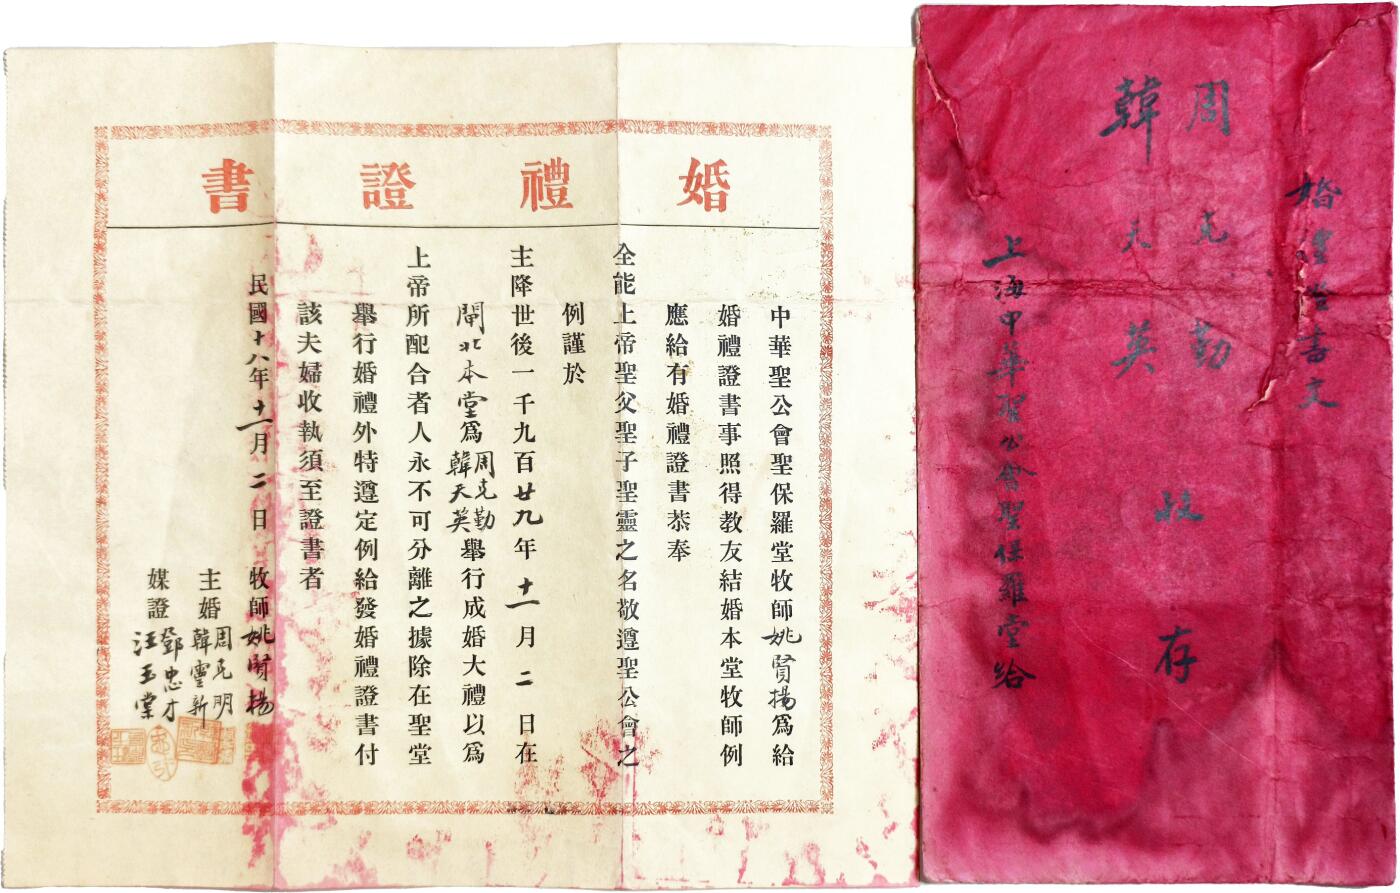 婚禮證書
中華聖公會聖保羅堂牧師姚賢揚為給
婚禮證書事照得教友結婚本堂牧師例
應給有婚禮證書恭奉
全能上帝聖父聖子聖靈之名敬遵聖公會之
例謹於
主降世後一千九百廿九年十一月二日在
閘北本堂為周克勤韓天英舉行成婚大禮以為
上帝所配合者人永不可分離之據除在聖堂
舉行婚禮外特遵定例給發婚禮證書付
該夫婦收執須至證書者
民國十八年十一月二日 牧師姚賢揚
主婚 周克明 韓靈新
媒證 鄧忠才 汪玉棠
婚禮證書文
周克勤
韓天英
收存
上海中華聖公會聖保羅堂給